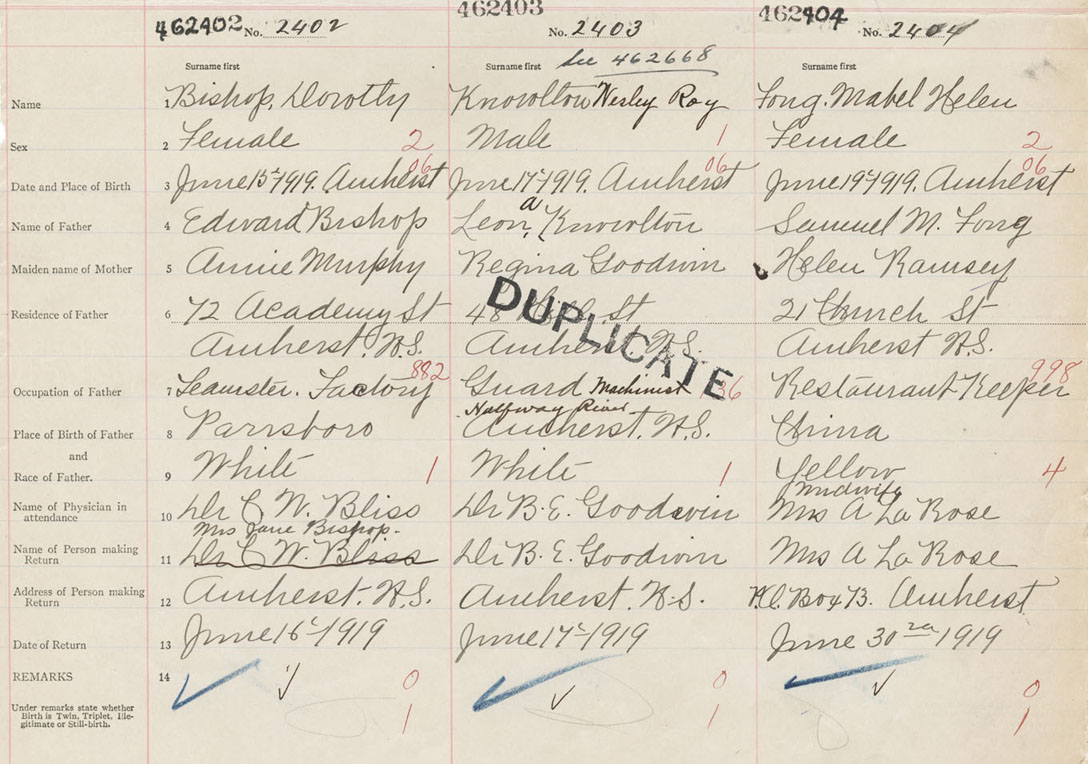 462402 No. 2402
462403 No. 2403
462404 No. 2404
See 462668
Surname first Surname first Surname first
Name 1 Bishop, Dorothy Knowlton Wesley Roy Fong. Mabel Helen
Sex 2 Female 2 Male 1 Female 2
06 06 06
Date and Place of Birth 3 June 15th 1919. Amherst June 17th 1919. Amherst June 19th 1919. Amherst
Name of Father 4 Edward Bishop Leon a Knowlton Samuel M. Fong
Maiden name of Mother 5 Annie Murphy Regina Goodwin Helen Ramsey
DUPLICATE
Residence of Father 6 72 Academy St 48 St 21 Church St
Amherst. N.S. Amherst N.S. Amherst N.S.
882 998
Occupation of Father 7 Teamster. Factory Guard Machinist 36 Restaurant Keeper
Halfway River
Place of Birth of Father 8 Parrsboro Amherst. N.S. China
and
Race of Father. 9 White 1 White 1 Yellow 4
Midwife
Name of Physician in attendance 10 Dr C W. Bliss Dr B. E. Goodwin Mrs A La Rose
Mrs Jane Bishop.
Name of Person making Return 11 Dr C W. Bliss Dr B. E. Goodwin Mrs A La Rose
Address of Person making Return 12 Amherst. N.S. Amherst. N.S. Box 73. Amherst
Date of Return 13 June 16th 1919 June 17th 1919 June 30 1919
REMARKS 14 0 0 0
Under remarks state whether
Birth is Twin, Triplet, Ille-
gitimate or Still-birth. 1 1 1